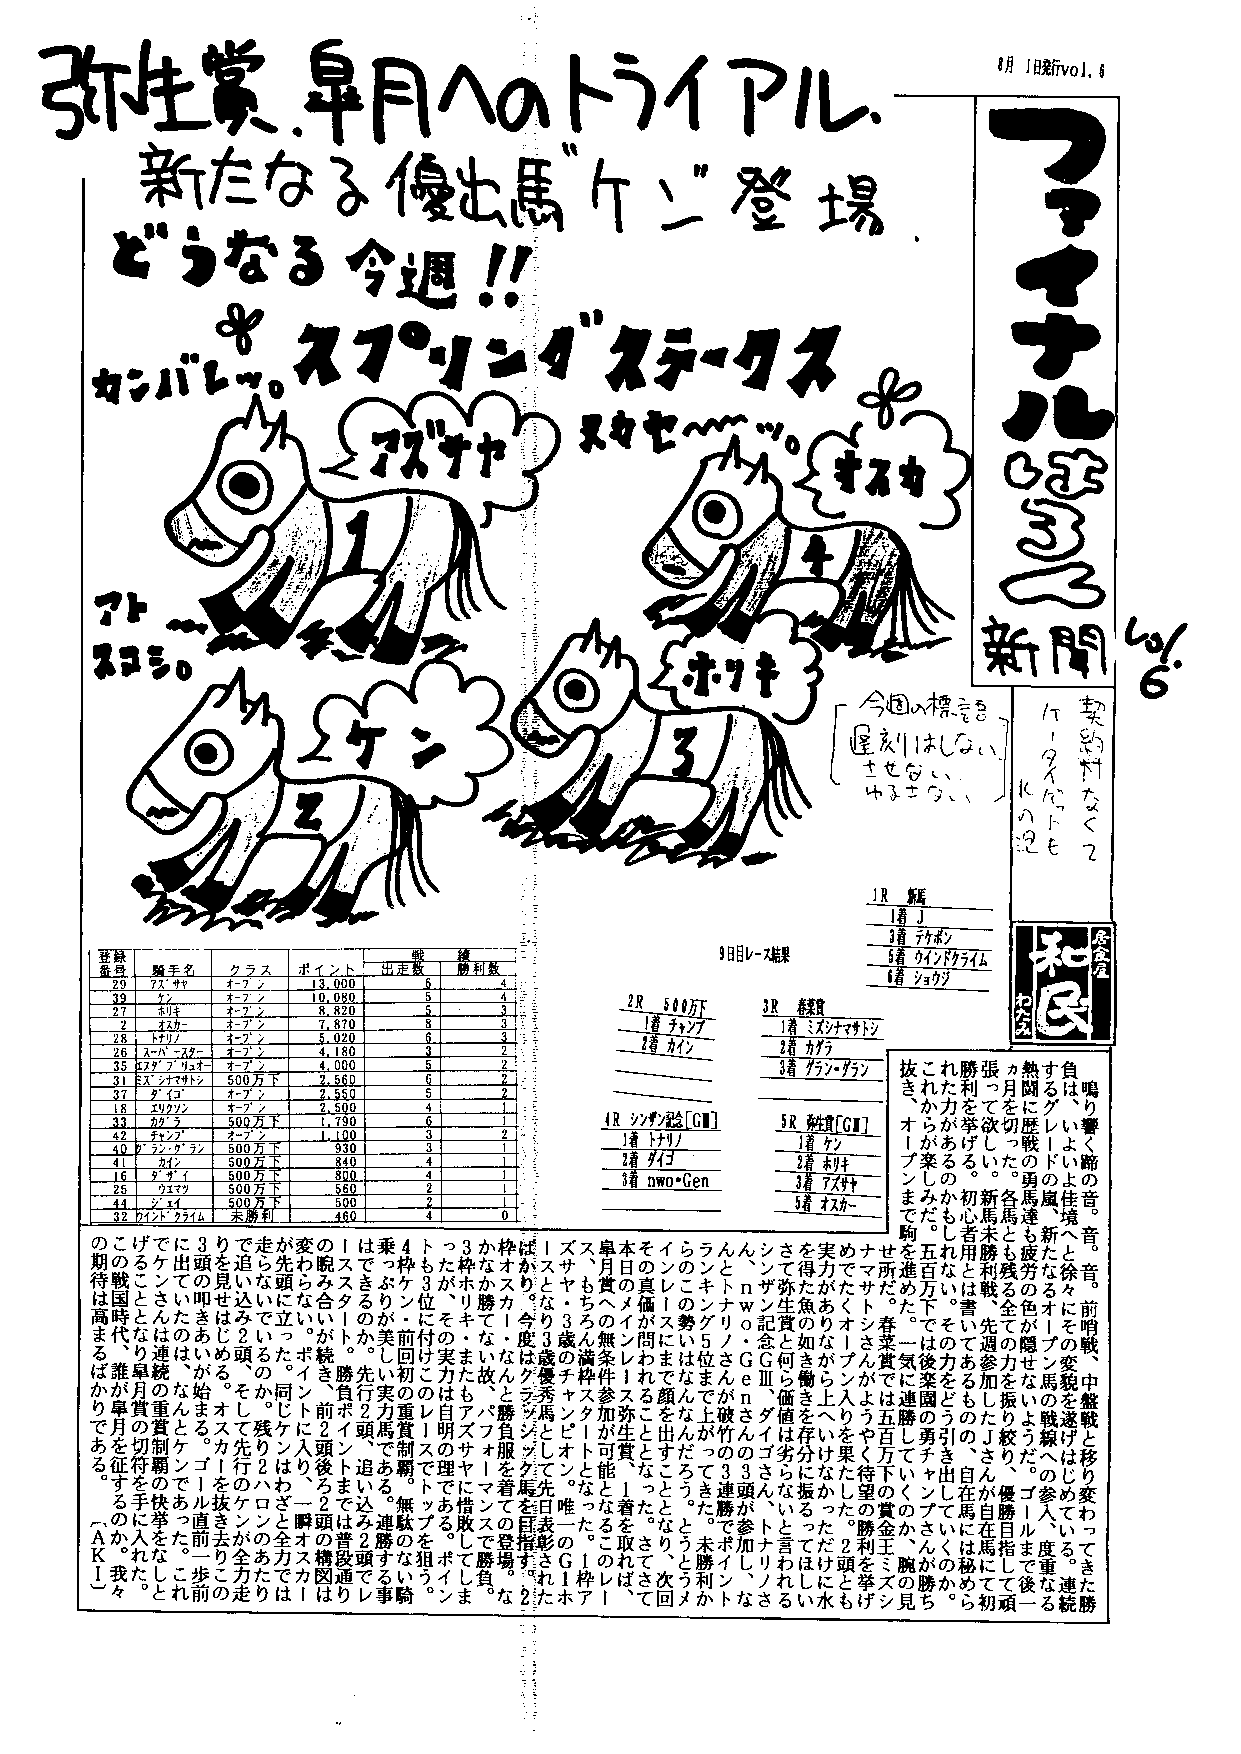 8月 1日発行vol. 6
弥生賞、皐月へのトライアル、
新たなる優出馬"ケン"登場
どうなる今週!!
スプリングステークス
ガンバレッ。
アズサヤ
1
スカセ〜〜ッ。
オスカ
4
アト
スコシ。
ケン
2
ホリキ
3
ファイナル
はろん
新聞
vol.
6
今週の標語
遅刻はしない
させない
ゆるさない
契約村なくて
ケータイゲットも
水の泡
居食屋
和民
わたみ
9日目レース結果
1R 新馬
1着 J
3着 デケポン
5着 ウインドクライム
6着 ショウジ
2R 500万下
1着 チャンプ
2着 カイン
3R 春菜賞
1着 ミズシナマサトシ
2着 カグラ
3着 グラン・グラン
4R シンザン記念[GⅢ]
1着 トナリノ
2着 ダイゴ
3着 nwo・Gen
5R 弥生賞[GⅡ]
1着 ケン
2着 ホリキ
3着 アズサヤ
5着 オスカー
登録番号 騎手名 クラス ポイント 戦績 出走数 勝利数
29 アズサヤ オープン 13,000 6 4
39 ケン オープン 10,080 5 4
27 ホリキ オープン 8,820 5 3
2 オスカー オープン 7,870 8 3
28 トナリノ オープン 5,020 6 3
26 スーパースター オープン 4,180 3 2
35 エスダブリュオー オープン 4,000 5 2
31 ミズシナマサトシ 500万下 2,560 6 2
37 ダイゴ オープン 2,550 5 2
18 エリクソン オープン 2,500 4 1
33 カグラ 500万下 1,790 6 1
42 チャンプ オープン 1,100 3 2
40 グラン・グラン 500万下 930 3 1
41 カイン 500万下 840 4 1
16 ダザイ 500万下 800 4 1
25 ウエマツ 500万下 560 2 1
44 ジェイ 500万下 500 2 1
32 ウインドクライム 未勝利 460 4 0
鳴り響く蹄の音。音。音。前哨戦、中盤戦と移り変わってきた勝
負は、いよいよ佳境へと徐々にその変貌を遂げはじめている。連続
するグレードの嵐、新たなるオープン馬の戦線への参入、度重なる
熱闘に歴戦の勇馬達も疲労の色が隠せないようだ。ゴールまで後一
ヵ月を切った。各馬とも残る全ての力を振り絞り、優勝目指して頑
張って欲しい。新馬未勝利戦、先週参加したJさんが自在馬にて初
勝利を挙げる。初心者用とは書いてあるものの、自在馬には秘めら
れた力があるのかもしれない。その力をどう引き出していくのか。
これからが楽しみだ。五百万下では後楽園の勇チャンプさんが勝ち
抜き、オープンまで駒を進めた。一気に連勝していくのか、腕の見
せ所だ。春菜賞では五百万下の賞金王ミズシ
ナマサトシさんがようやく待望の勝利を挙げ
めでたくオープン入りを果たした。2頭とも
実力がありながら上へいけなかっただけに水
を得た魚の如き働きを存分に振るってほしい
さて弥生賞と何ら価値は劣らないと言われる
シンザン記念GⅢ、ダイゴさん、トナリノさ
ん、nwo・Genさんの3頭が参加し、な
んとトナリノさんが破竹の3連勝でポイント
ランキング5位まで上がってきた。未勝利か
らのこの勢いはなんなんだろう。とうとうメ
インレースにまで顔を出すこととなり、次回
その真価が問われることとなった。さてさて
本日のメインレース弥生賞、1着を取れば、
皐月賞への無条件参加が可能となるこのレー
ス、もちろん満枠スタートとなった。1枠ア
ズサヤ・3歳のチャンピオン。唯一のG1ホ
ースとなり3歳優秀馬として先日表彰された
ばかり。今度はクラッシック馬を目指す。2
枠オスカー・なんと勝負服を着ての登場。な
かなか勝てない故、パフォーマンスで勝負。
3枠ホリキ・またもアズサヤに惜敗してしま
ったが、その実力は自明の理である。ポイン
トも3位に付けこのレースでトップを狙う。
4枠ケン・前回初の重賞制覇。無駄のない騎
乗っぷりが美しい実力馬である。連勝する事
はできるのか。先行2頭、追い込み2頭でレ
ーススタート。勝負ポイントまでは普段通り
の睨み合いが続き、前2頭後ろ2頭の構図は
変わらない。ポイントに入り、一瞬オスカー
が先頭に立った。同じケンはわざと全力では
走らないでいるのか。残り2ハロンのあたり
で追い込み2頭、そして先行のケンが全力走
りを見せはじめる。オスカーを抜き去りこの
3頭の叩きあいが始まる。ゴール直前一歩前
に出ていたのは、なんとケンであった。これ
でケンさんは連続の重賞制覇の快挙をなしと
げることとなり皐月賞の切符を手に入れた。
この戦国時代、誰が皐月を征するのか。我々
の期待は高まるばかりである。 〔AKI〕